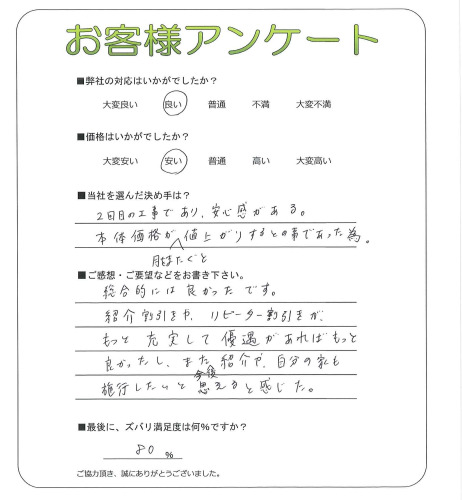 お客様アンケート
■弊社の対応はいかがでしたか？
大変良い 良い 普通 不満 大変不満
■価格はいかがでしたか？
大変安い 安い 普通 高い 大変高い
■当社を選んだ決め手は？
2回目の工事であり、安心感がある。
本体価格が値上がりするとの事であった為。
月をまたぐと
■ご感想・ご要望などをお書き下さい。
総合的には良かったです。
紹介割引きや、リピーター割引きが、
もっと充実して優遇があればもっと
良かったし、また紹介や、自分の家も
今後
施行したいと思えると感じた。
■最後に、ズバリ満足度は何%ですか？
80 %
ご協力頂き、誠にありがとうございました。